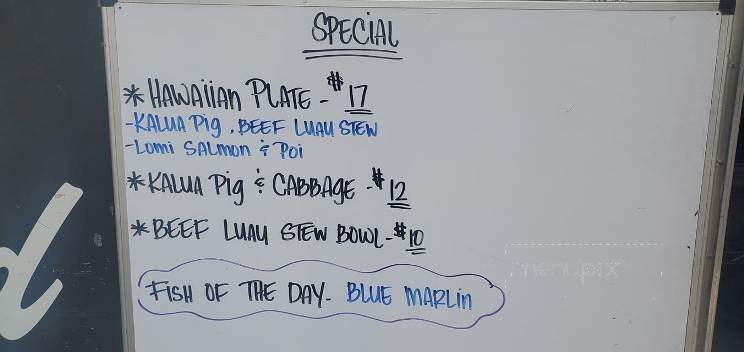 SPECiAL
* HAWAiiAN PLATE - $17
-KALUA Pig, BEEF LUAU STEW
-Lomi SALMON & Poi
* KALUA Pig & CABBAgE - $12
* BEEF LUAU STEW BOWL - $10
FiSH OF THE DAY - BLUE MARLiN
menupix
d